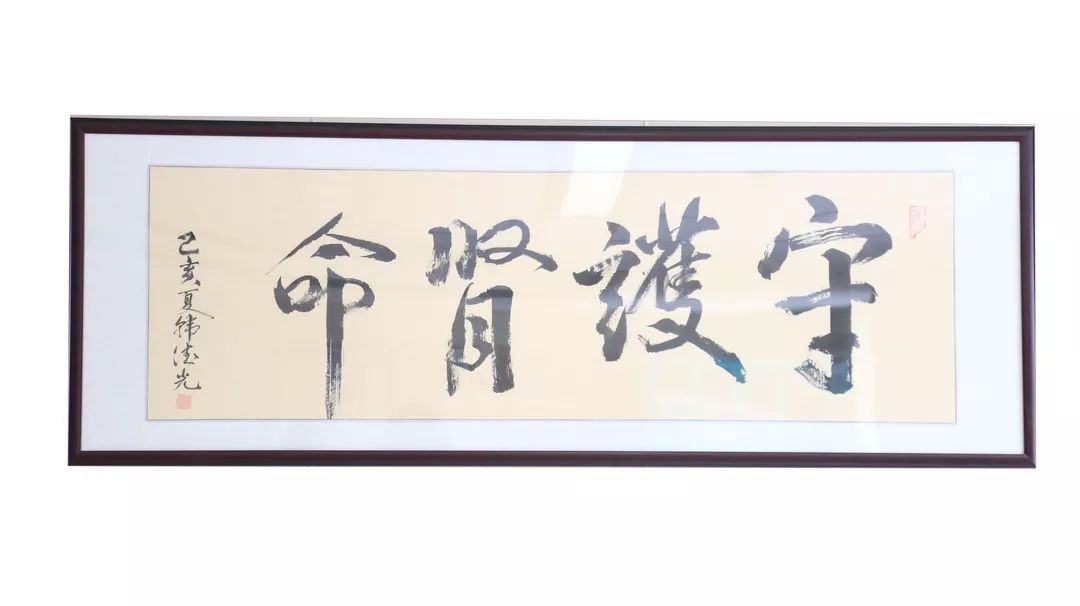 守護腎命
己亥夏韩德光